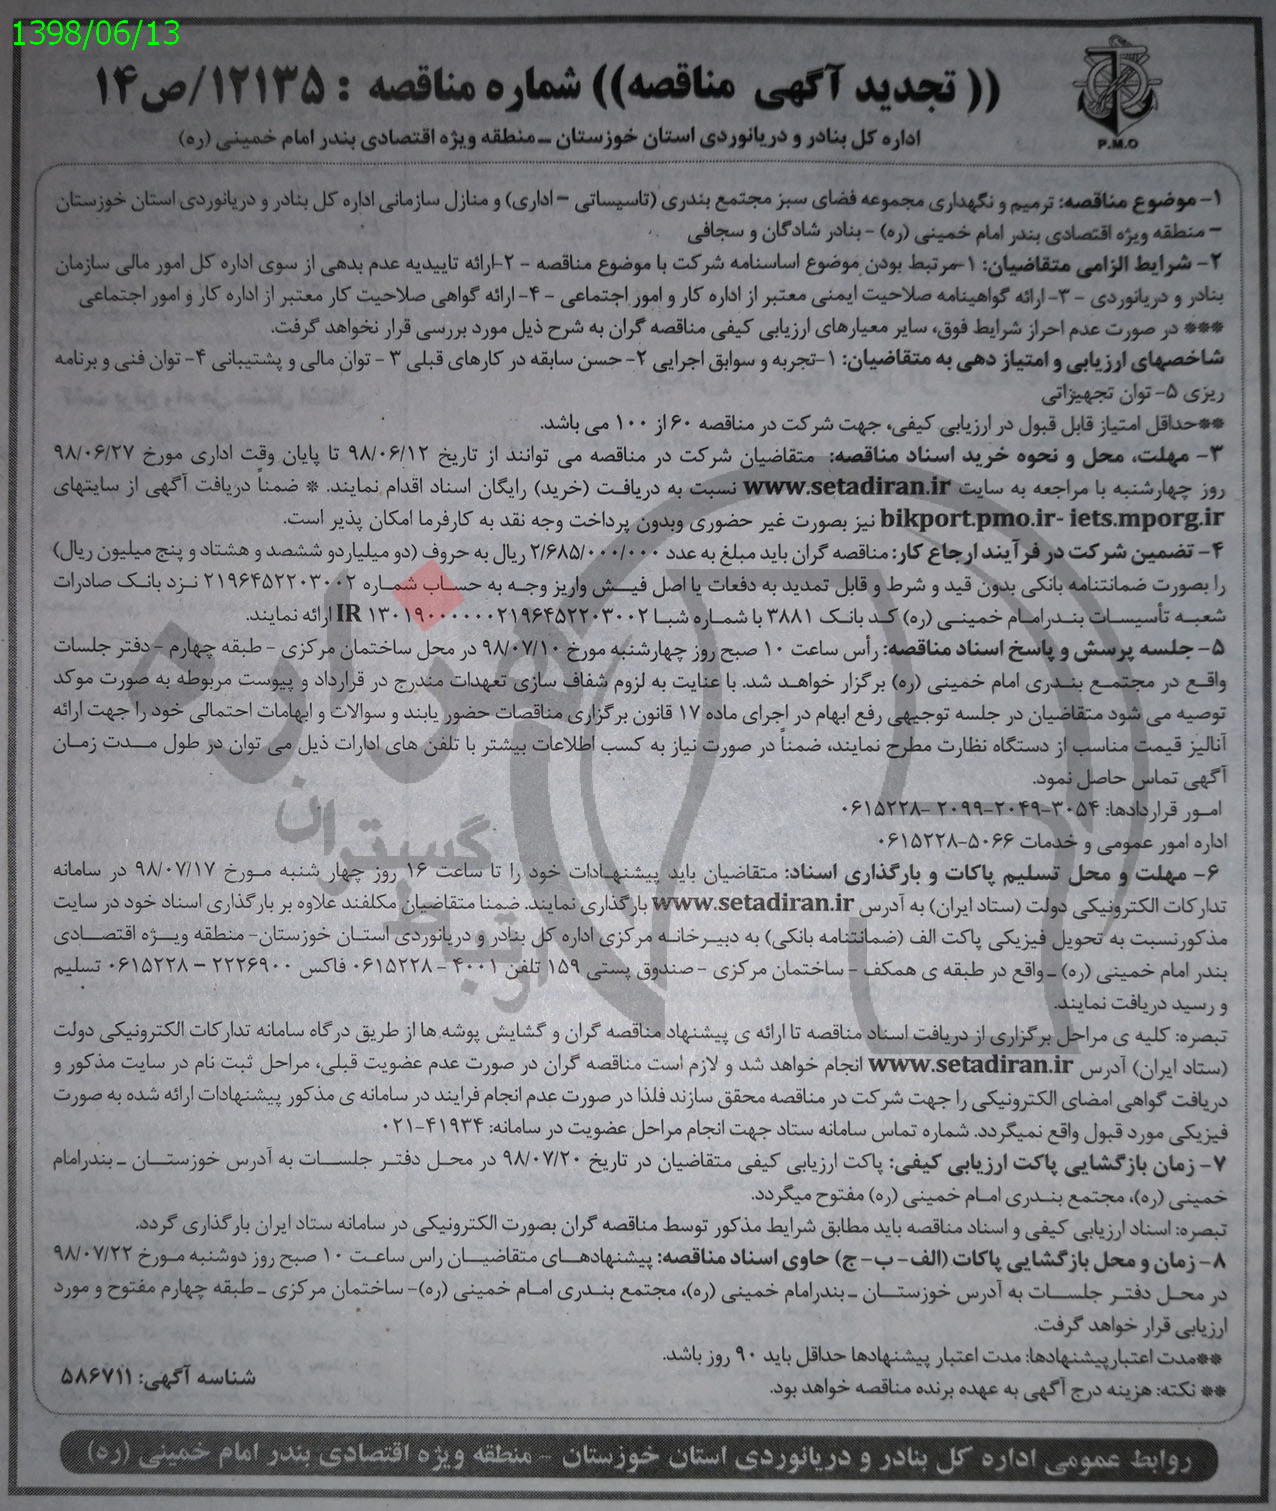 1398/06/13
(( تجدید آگهی مناقصه)) شماره مناقصه : ۱۲۱۳۵/ص۱۴
P.M.O
اداره کل بنادر و دریانوردی استان خوزستان – منطقه ویژه اقتصادی بندر امام خمینی (ره)
۱- موضوع مناقصه: ترمیم و نگهداری مجموعه فضای سبز مجتمع بندری (تاسیساتی – اداری) و منازل سازمانی اداره کل بنادر و دریانوردی استان خوزستان
– منطقه ویژه اقتصادی بندر امام خمینی (ره) -بنادر شادگان و سجافی
۲- شرایط الزامی متقاضیان: ۱-مرتبط بودن موضوع اساسنامه شرکت با موضوع مناقصه - ۲-ارائه تاییدیه عدم بدهی از سوی اداره کل امور مالی سازمان
بنادر و دریانوردی - ۳-ارائه گواهینامه صلاحیت ایمنی معتبر از اداره کار و امور اجتماعی - ۴-ارائه گواهی صلاحیت کار معتبر از اداره کار و امور اجتماعی
*** در صورت عدم احراز شرایط فوق، سایر معیارهای ارزیابی کیفی مناقصه گران به شرح ذیل مورد بررسی قرار نخواهد گرفت.
شاخصهای ارزیابی و امتیاز دهی به متقاضیان: ۱-تجربه و سوابق اجرایی ۲- حسن سابقه در کارهای قبلی ۳ - توان مالی و پشتیبانی ۴- توان فنی و برنامه
ریزی ۵- توان تجهیزاتی
**حداقل امتیاز قابل قبول در ارزیابی کیفی، جهت شرکت در مناقصه ۶۰ از ۱۰۰ می باشد.
۳- مهلت، محل و نحوه خرید اسناد مناقصه: متقاضیان شرکت در مناقصه می توانند از تاریخ ۹۸/۰۶/۱۲ تا پایان وقت اداری مورخ ۹۸/۰۶/۲۷
روز چهارشنبه با مراجعه به سایت www.setadiran.ir نسبت به دریافت (خرید) رایگان اسناد اقدام نمایند. * ضمناً دریافت آگهی از سایتهای
bikport.pmo.ir- iets.mporg.ir نیز بصورت غیر حضوری وبدون پرداخت وجه نقد به کارفرما امکان پذیر است.
۴- تضمین شرکت در فرآیند ارجاع کار: مناقصه گران باید مبلغ به عدد ۲/۶۸۵/۰۰۰/۰۰۰ ریال به حروف (دو میلیاردو ششصد و هشتاد و پنج میلیون ریال)
را بصورت ضمانتنامه بانکی بدون قید و شرط و قابل تمدید به دفعات یا اصل فیش واریز وجه به حساب شماره ۲۱۹۶۴۵۲۲۰۳۰۰۲ نزد بانک صادرات
شعبه تأسیسات بندرامام خمینی (ره) کد بانک ۳۸۸۱ با شماره شبا IR ۱۳۰۱۹۰۰۰۰۰۰۲۱۹۶۴۵۲۲۰۳۰۰۲ ارائه نمایند.
۵- جلسه پرسش و پاسخ اسناد مناقصه: رأس ساعت ۱۰ صبح روز چهارشنبه مورخ ۹۸/۰۷/۱۰ در محل ساختمان مرکزی - طبقه چهارم -دفتر جلسات
واقع در مجتمع بندری امام خمینی (ره) برگزار خواهد شد. با عنایت به لزوم شفاف سازی تعهدات مندرج در قرارداد و پیوست مربوطه به صورت موکد
توصیه می شود متقاضیان در جلسه توجیهی رفع ابهام در اجرای ماده ۱۷ قانون برگزاری مناقصات حضور یابند و سوالات و ابهامات احتمالی خود را جهت ارائه
آنالیز قیمت مناسب از دستگاه نظارت مطرح نمایند، ضمناً در صورت نیاز به کسب اطلاعات بیشتر با تلفن های ادارات ذیل می توان در طول مدت زمان
آگهی تماس حاصل نمود.
امور قراردادها: ۳۰۵۴-۲۰۴۹-۲۰۹۹ -۰۶۱۵۲۲۸
اداره امور عمومی و خدمات ۵۰۶۶-۰۶۱۵۲۲۸
۶- مهلت و محل تسلیم پاکات و بارگذاری اسناد: متقاضیان باید پیشنهادات خود را تا ساعت ۱۶ روز چهار شنبه مورخ ۹۸/۰۷/۱۷ در سامانه
تدارکات الکترونیکی دولت (ستاد ایران) به آدرس www.setadiran.ir بارگذاری نمایند. ضمنا متقاضیان مکلفند علاوه بر بارگذاری اسناد خود در سایت
مذکورنسبت به تحویل فیزیکی پاکت الف (ضمانتنامه بانکی) به دبیرخانه مرکزی اداره کل بنادر و دریانوردی استان خوزستان- منطقه ویژه اقتصادی
بندر امام خمینی (ره) – واقع در طبقه ی همکف - ساختمان مرکزی - صندوق پستی ۱۵۹ تلفن ۴۰۰۱ - ۰۶۱۵۲۲۸ فاکس ۲۲۲۶۹۰۰ – ۰۶۱۵۲۲۸ تسلیم
و رسید دریافت نمایند.
تبصره: کلیه ی مراحل برگزاری از دریافت اسناد مناقصه تا ارائه ی پیشنهاد مناقصه گران و گشایش پوشه ها از طریق درگاه سامانه تدارکات الکترونیکی دولت
(ستاد ایران) آدرس www.setadiran.ir انجام خواهد شد و لازم است مناقصه گران در صورت عدم عضویت قبلی، مراحل ثبت نام در سایت مذکور و
دریافت گواهی امضای الکترونیکی را جهت شرکت در مناقصه محقق سازند فلذا در صورت عدم انجام فرایند در سامانه ی مذکور پیشنهادات ارائه شده به صورت
فیزیکی مورد قبول واقع نمیگردد. شماره تماس سامانه ستاد جهت انجام مراحل عضویت در سامانه: ۴۱۹۳۴-۰۲۱
۷- زمان بازگشایی پاکت ارزیابی کیفی: پاکت ارزیابی کیفی متقاضیان در تاریخ ۹۸/۰۷/۲۰ در محل دفتر جلسات به آدرس خوزستان – بندرامام
خمینی (ره)، مجتمع بندری امام خمینی (ره) مفتوح میگردد.
تبصره: اسناد ارزیابی کیفی و اسناد مناقصه باید مطابق شرایط مذکور توسط مناقصه گران بصورت الکترونیکی در سامانه ستاد ایران بارگذاری گردد.
۸- زمان و محل بازگشایی پاکات (الف- ب- ج) حاوی اسناد مناقصه: پیشنهادهای متقاضیان راس ساعت ۱۰ صبح روز دوشنبه مورخ ۹۸/۰۷/۲۲
در محل دفتر جلسات به آدرس خوزستان – بندرامام خمینی (ره)، مجتمع بندری امام خمینی (ره)- ساختمان مرکزی – طبقه چهارم مفتوح و مورد
ارزیابی قرار خواهد گرفت.
**مدت اعتبارپیشنهادها: مدت اعتبار پیشنهادها حداقل باید ۹۰ روز باشد.
** نکته: هزینه درج آگهی به عهده برنده مناقصه خواهد بود.
شناسه آگهی: ۵۸۶۷۱۱
روابط عمومی اداره کل بنادر و دریانوردی استان خوزستان - منطقه ویژه اقتصادی بندر امام خمینی (ره)